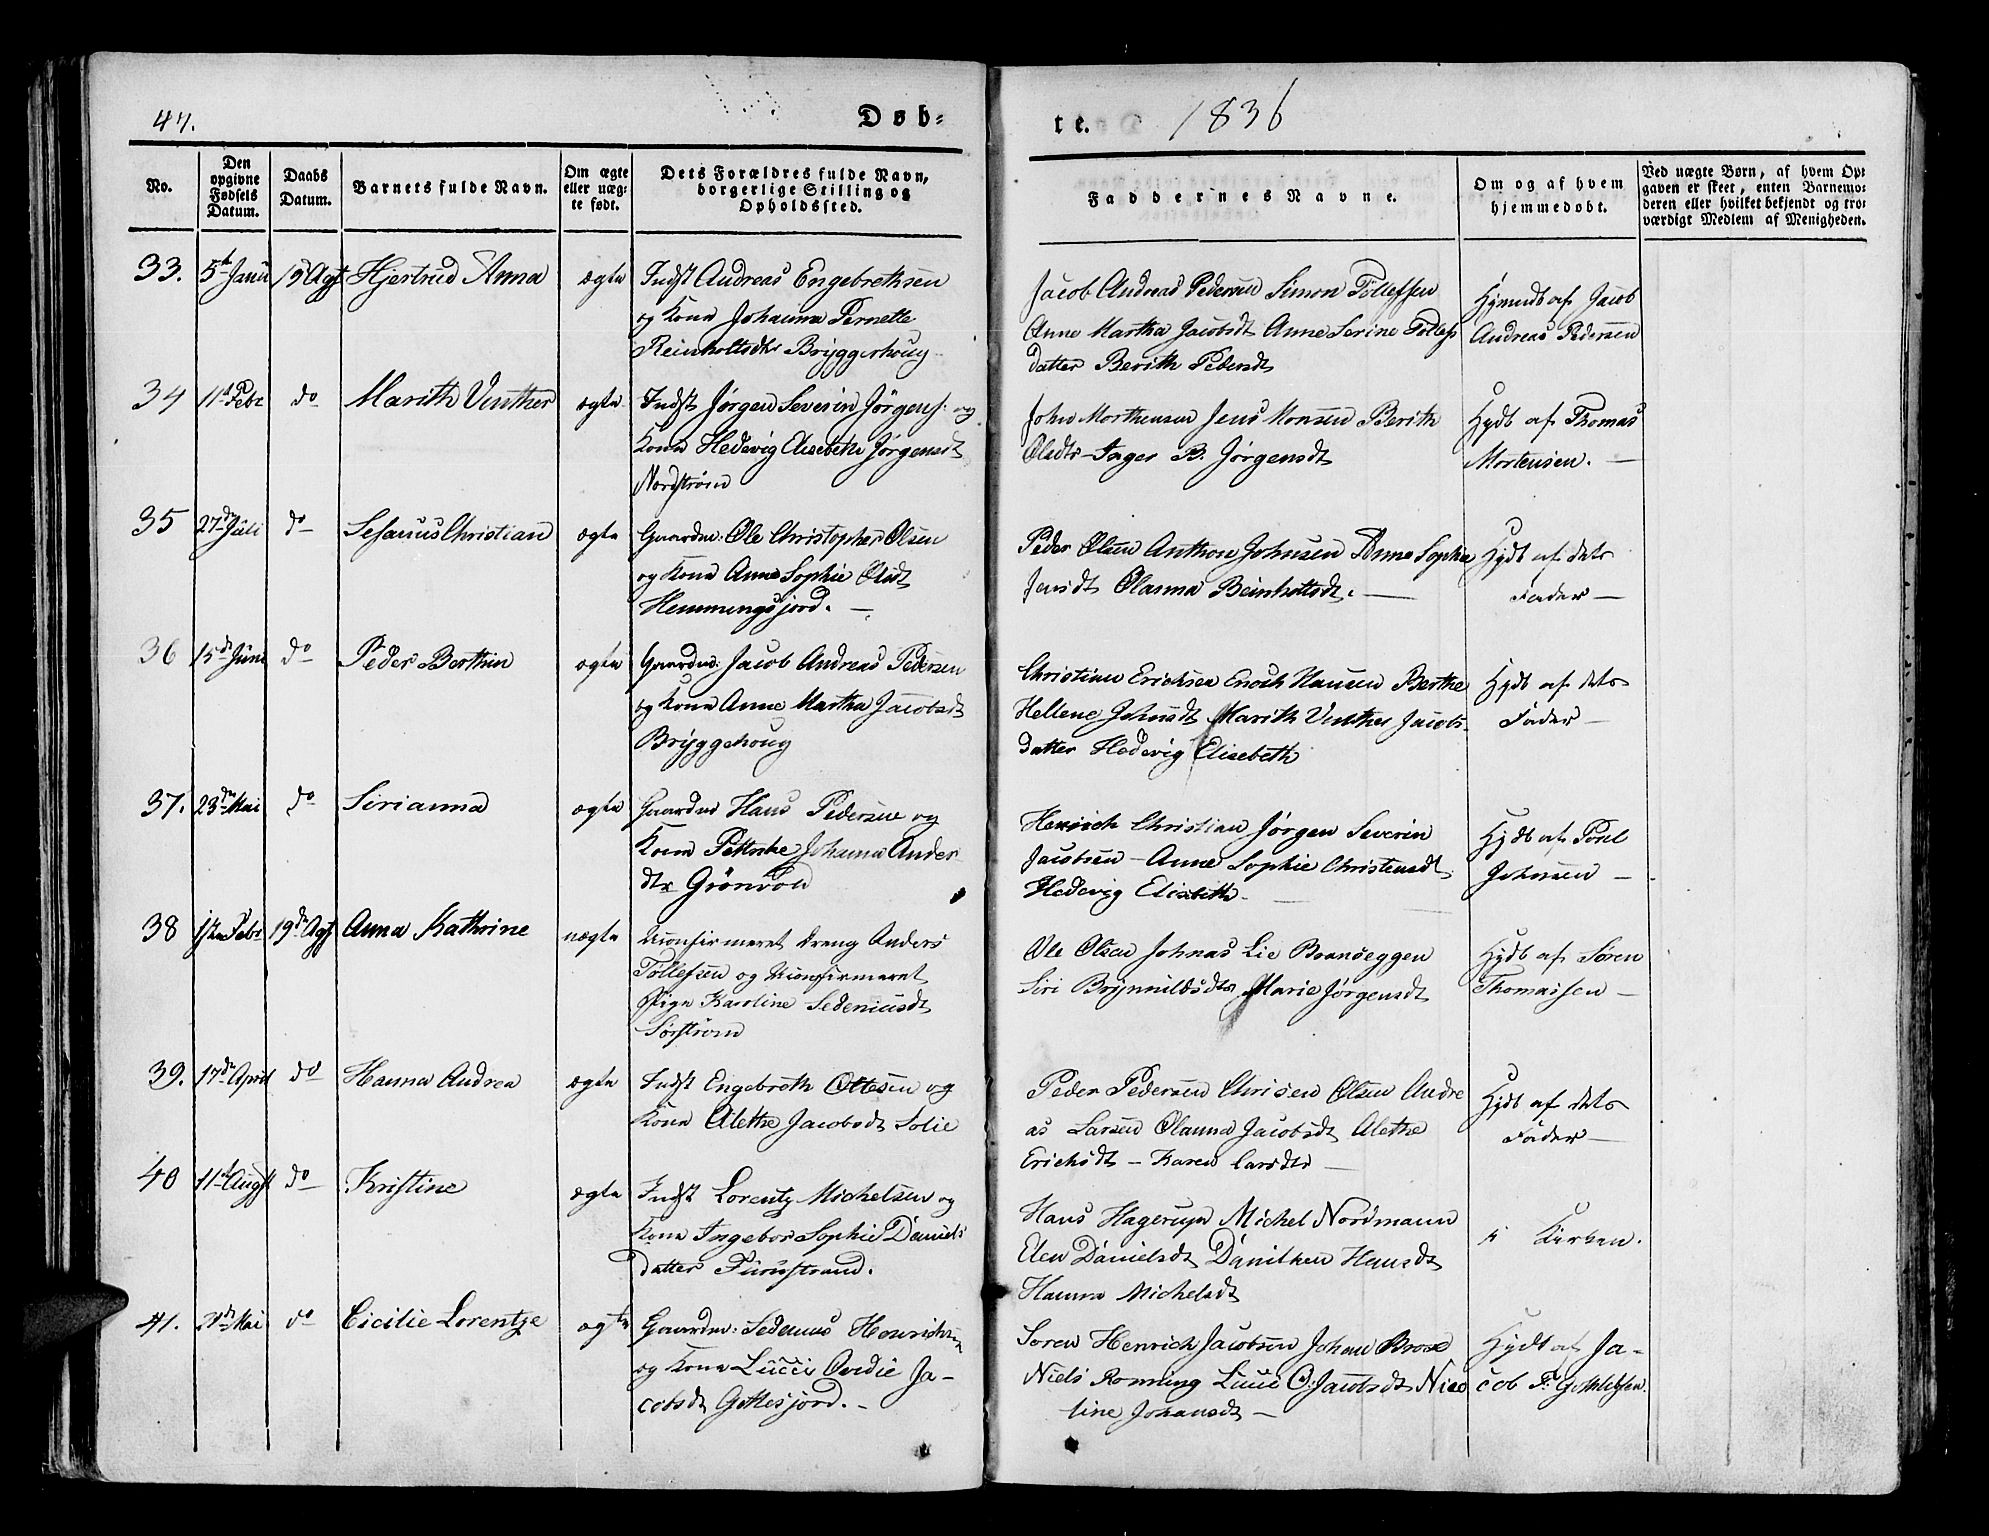 47.
Døb-
te.
1836
No.
Den opgivne Fødsels Datum.
Daabs Datum.
Barnets fulde Navn.
Om ægte eller uæg-
te født.
Dets Forældres fulde Navn,
borgerlige Stilling og
Opholdssted.
Faddernes Navne.
Om og af hvem
hjemmedøbt.
Ved uægte Børn, af hvem Op-
gaven er skeet, enten Barnemo-
deren eller hvilket bekjendt og tro-
værdigt Medlem af Menigheden.
33. 5t Juni 19 Agt Hjertrud Anna ægte Indst Andreas Engebrethsen
og Kona Johanna Pernette
Reinholtsdtr Bryggerhoug
Jacob Andreas Pedersen Simon Tollefsen
Anne Martha Jacobsdt Anne Serine Tollefs
datter Berith Pedersdt
Hjemdt af Jacob
Andreas Pedersen
34 11t Febr do Marith Vinther ægte Indst Jørgen Severin Jørgens. og
Kona Hedevig Elisebeth Jørgensdt
Nordstrøm
John Morthensen Jens Monsen Berith
Olsdtr Inger B. Jørgensdt
Hjdt af Thomas
Mortensen. —
35 27de Juli do Sefanus Christian ægte Gaardm: Ole Christopher Olsen
og Kona Anne Sophie Olsdt
Hemmingsjord. —
Peder Olsen Anthon Johnsen Anne Sophie
Jensdt Olanna Reinholtsdt. —
Hjdt af dets
Fader —
36 15de Juni do Peder Berthin ægte Gaardm: Jacob Andreas Pedersen
og Kona Anne Martha Jacobsdt
Bryggehoug
Christian Erichsen Enoch Hansen Berthe
Hellene Johnsdt Marith Vinther Jacobs-
datter Hedevig Elisebeth
Hjdt af dets
Fader —
37. 23de Mai do Sirianna ægte Gaardm Hans Pedersen og
Kona Petterke Johanna Anders
dtr Grønvold
Henrich Christian Jørgen Severin
Jacobsen — Anne Sophie Christensdt
Hedevig Elisbeth
Hjdt af Poul
Johnsen —
38 Febr 19de Agt Anna Kathrine uægte Ukonfirmeret Dreng Anders
Tollefsen og Ukonfirmeret
Pige Karoline Sedeniusdt
Sørstrøm
Ole Olsen Johnas Lie Branseggen
Siri Brynnildsdtr Marie Jørgensdt
Hjdt af Søren
Thomassen —
39. 17de April do Hanna Andrea ægte Indst Engebreth Ottesen og
Kona Alethe Jacobsdt Solie
Peder Pedersen Chrisen Olsen Andre
as Larsen Olanna Jacobsdt Alethe
Erichsdt — Karen Larsdtr —
Hjdt af dets
Fader —
40 11t Augst do Kristine ægte Indst Lorentz Michelsen og
Kona Ingebor Sophie Daniels
datter Furustrand.
Hans Hagerup Michel Nordmann
Elen Danielsdt Danithen Hansdt
Hanna Michelsdt
i Kirken.
41. Mai do Cicilie Lorentze ægte Gaardm: Sedenius Henrichsen
og Kona Lucci Ovedie Ja-
cobsdt Gottesjord. —
Søren Henrich Jacobsen Johan Brose
Niels Romung Lucie O: Jacobsdt Nico
line Johansdt —
Hjdt af Ja-
cob F: Gothlifsen.